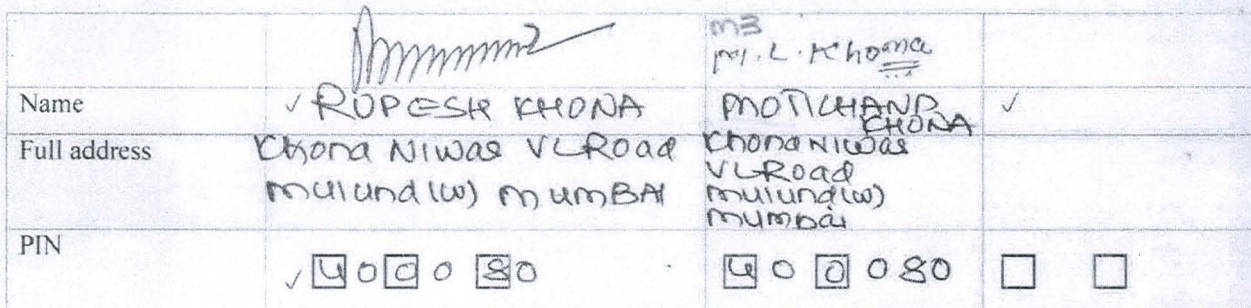 m3
M.L. Khona
Name ✓ RUPESH KHONA MOTICHAND KHONA ✓
Full address Khona Niwas VL Road mulund (w) mumBAI Khona Niwas VL Road mulund (w) mumbai
PIN ✓ 400080 400080